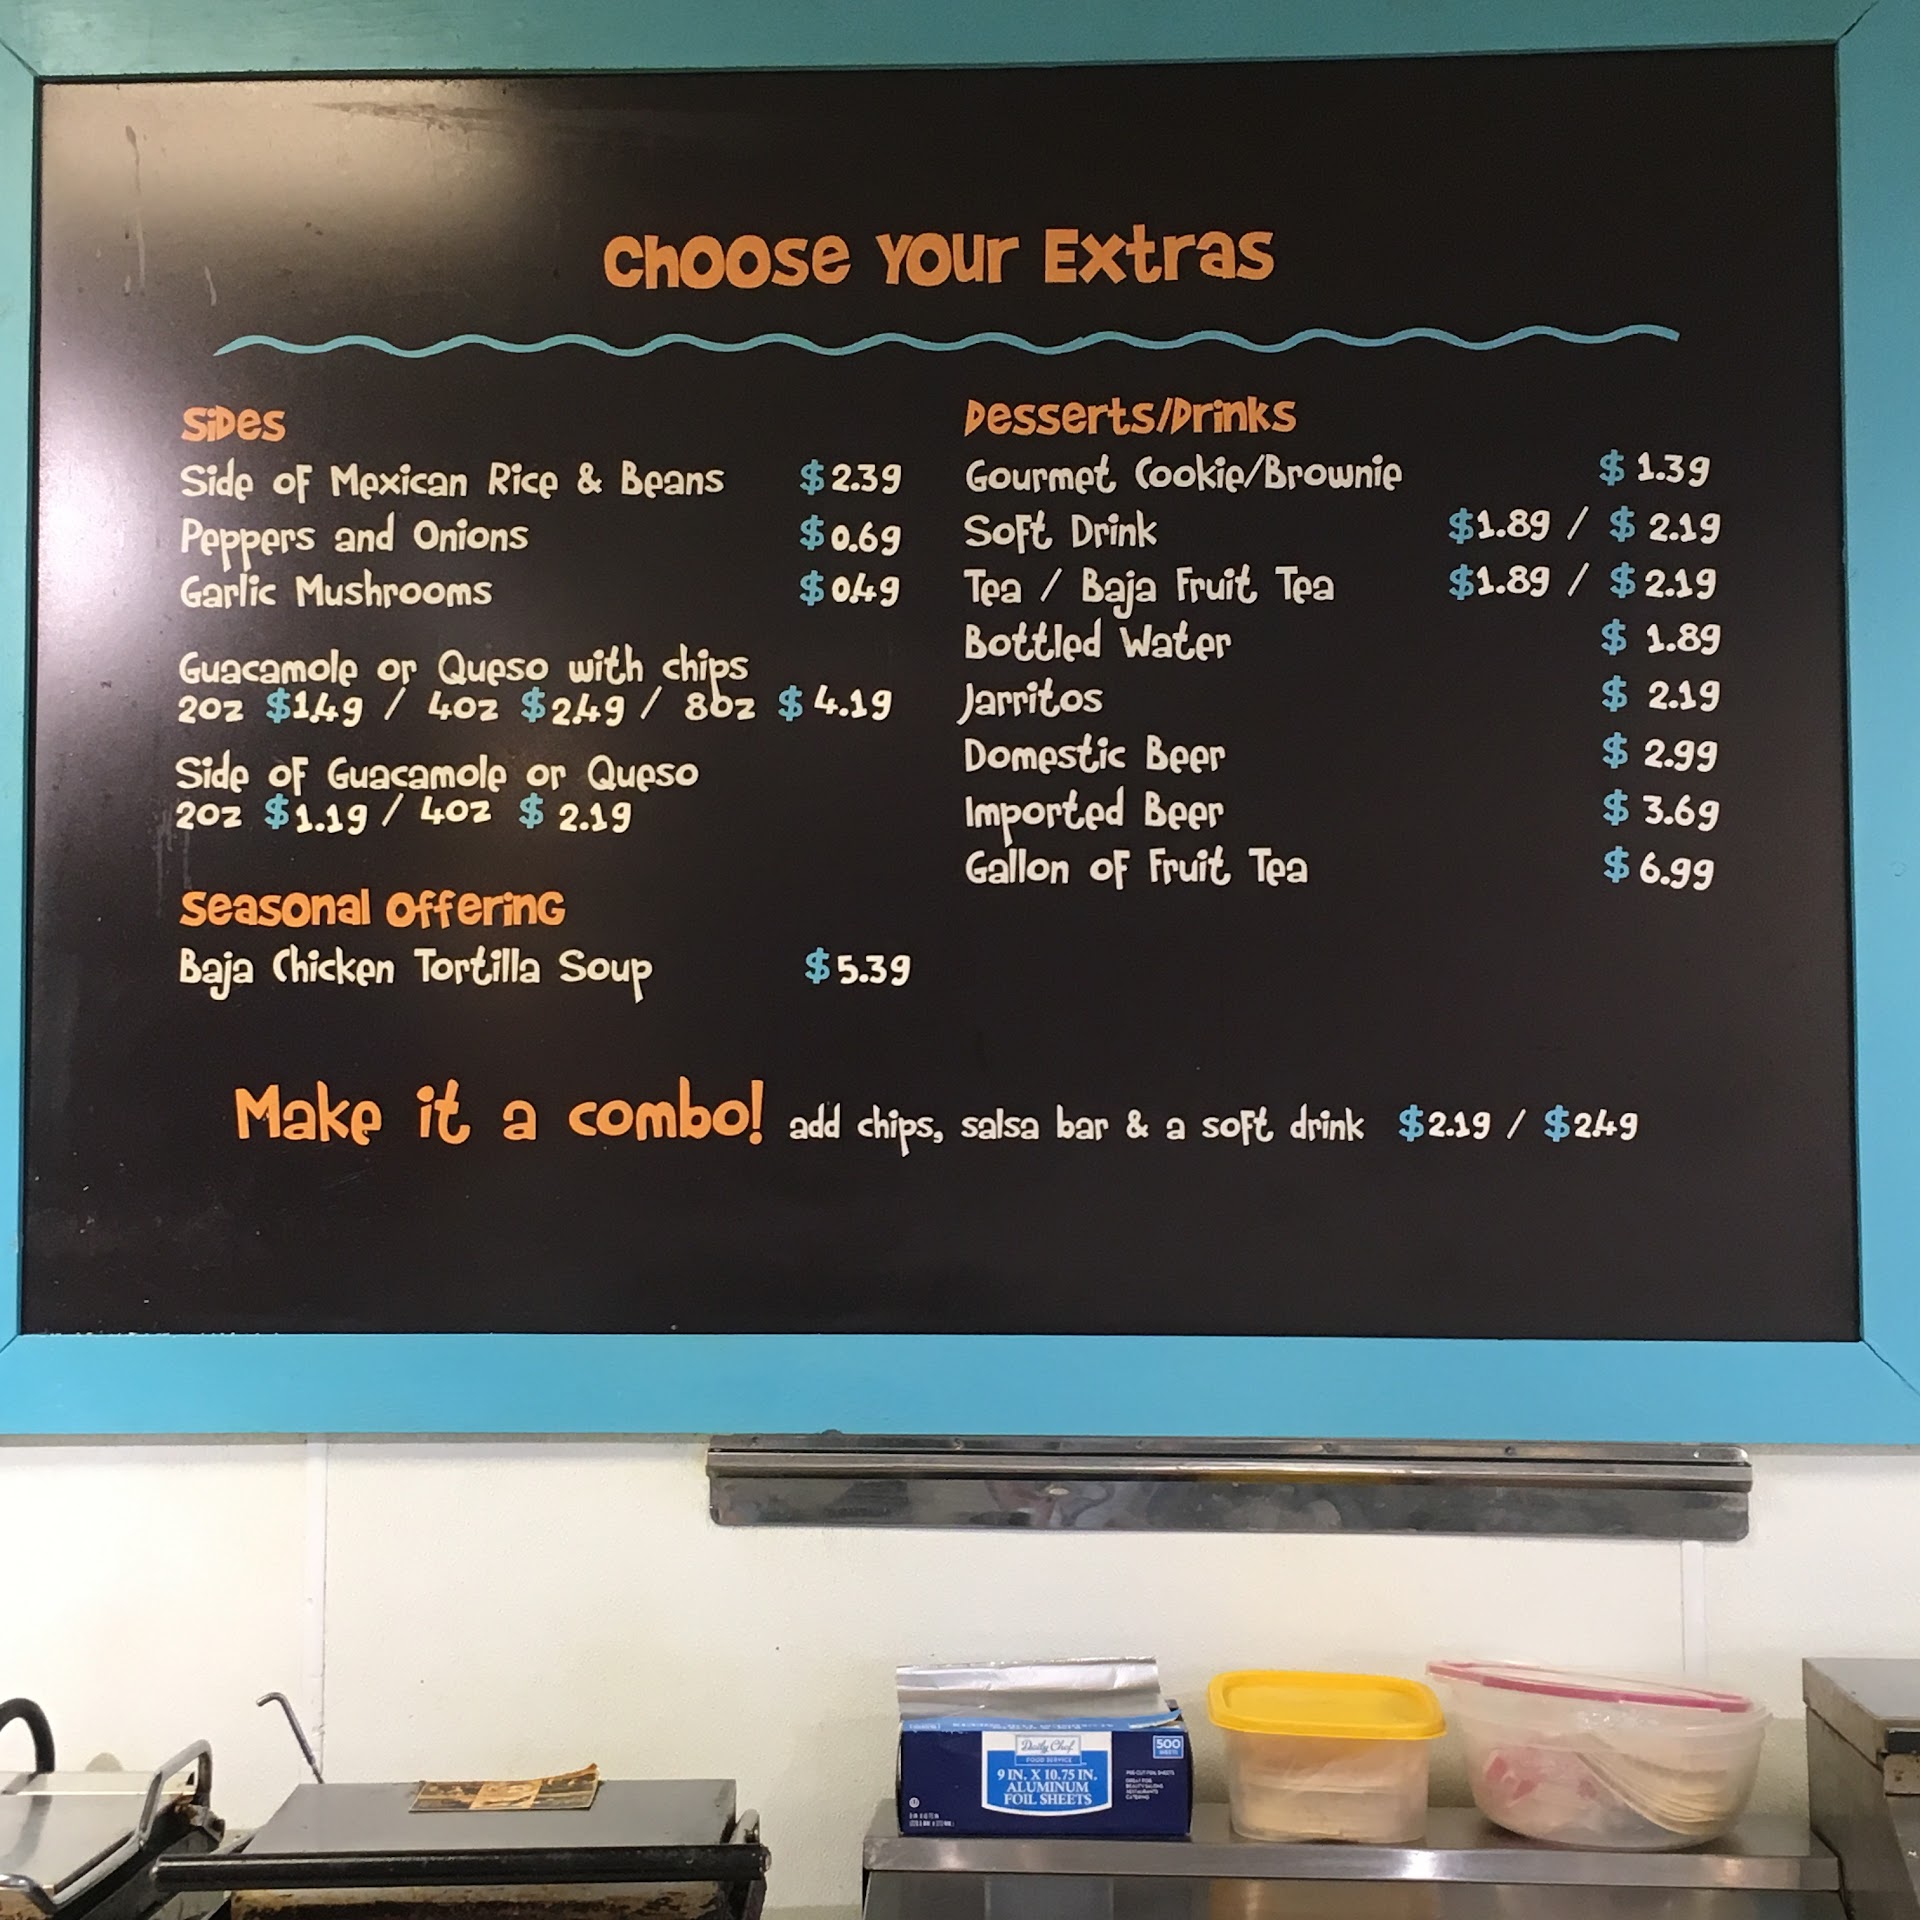 Choose Your Extras
Sides
Side of Mexican Rice & Beans $2.39
Peppers and Onions $0.69
Garlic Mushrooms $0.49
Guacamole or Queso with chips
2oz $1.49 / 4oz $2.49 / 8oz $4.19
Side of Guacamole or Queso
2oz $1.19 / 4oz $2.19
Seasonal Offering
Baja Chicken Tortilla Soup $5.39
Desserts/Drinks
Gourmet Cookie/Brownie $1.39
Soft Drink $1.89 / $2.19
Tea / Baja Fruit Tea $1.89 / $2.19
Bottled Water $1.89
Jarritos $2.19
Domestic Beer $2.99
Imported Beer $3.69
Gallon of Fruit Tea $6.99
Make it a combo! add chips, salsa bar & a soft drink $2.19 / $2.49
Daily Chef
FOOD SERVICE
9 IN. X 10.75 IN.
ALUMINUM
FOIL SHEETS
500